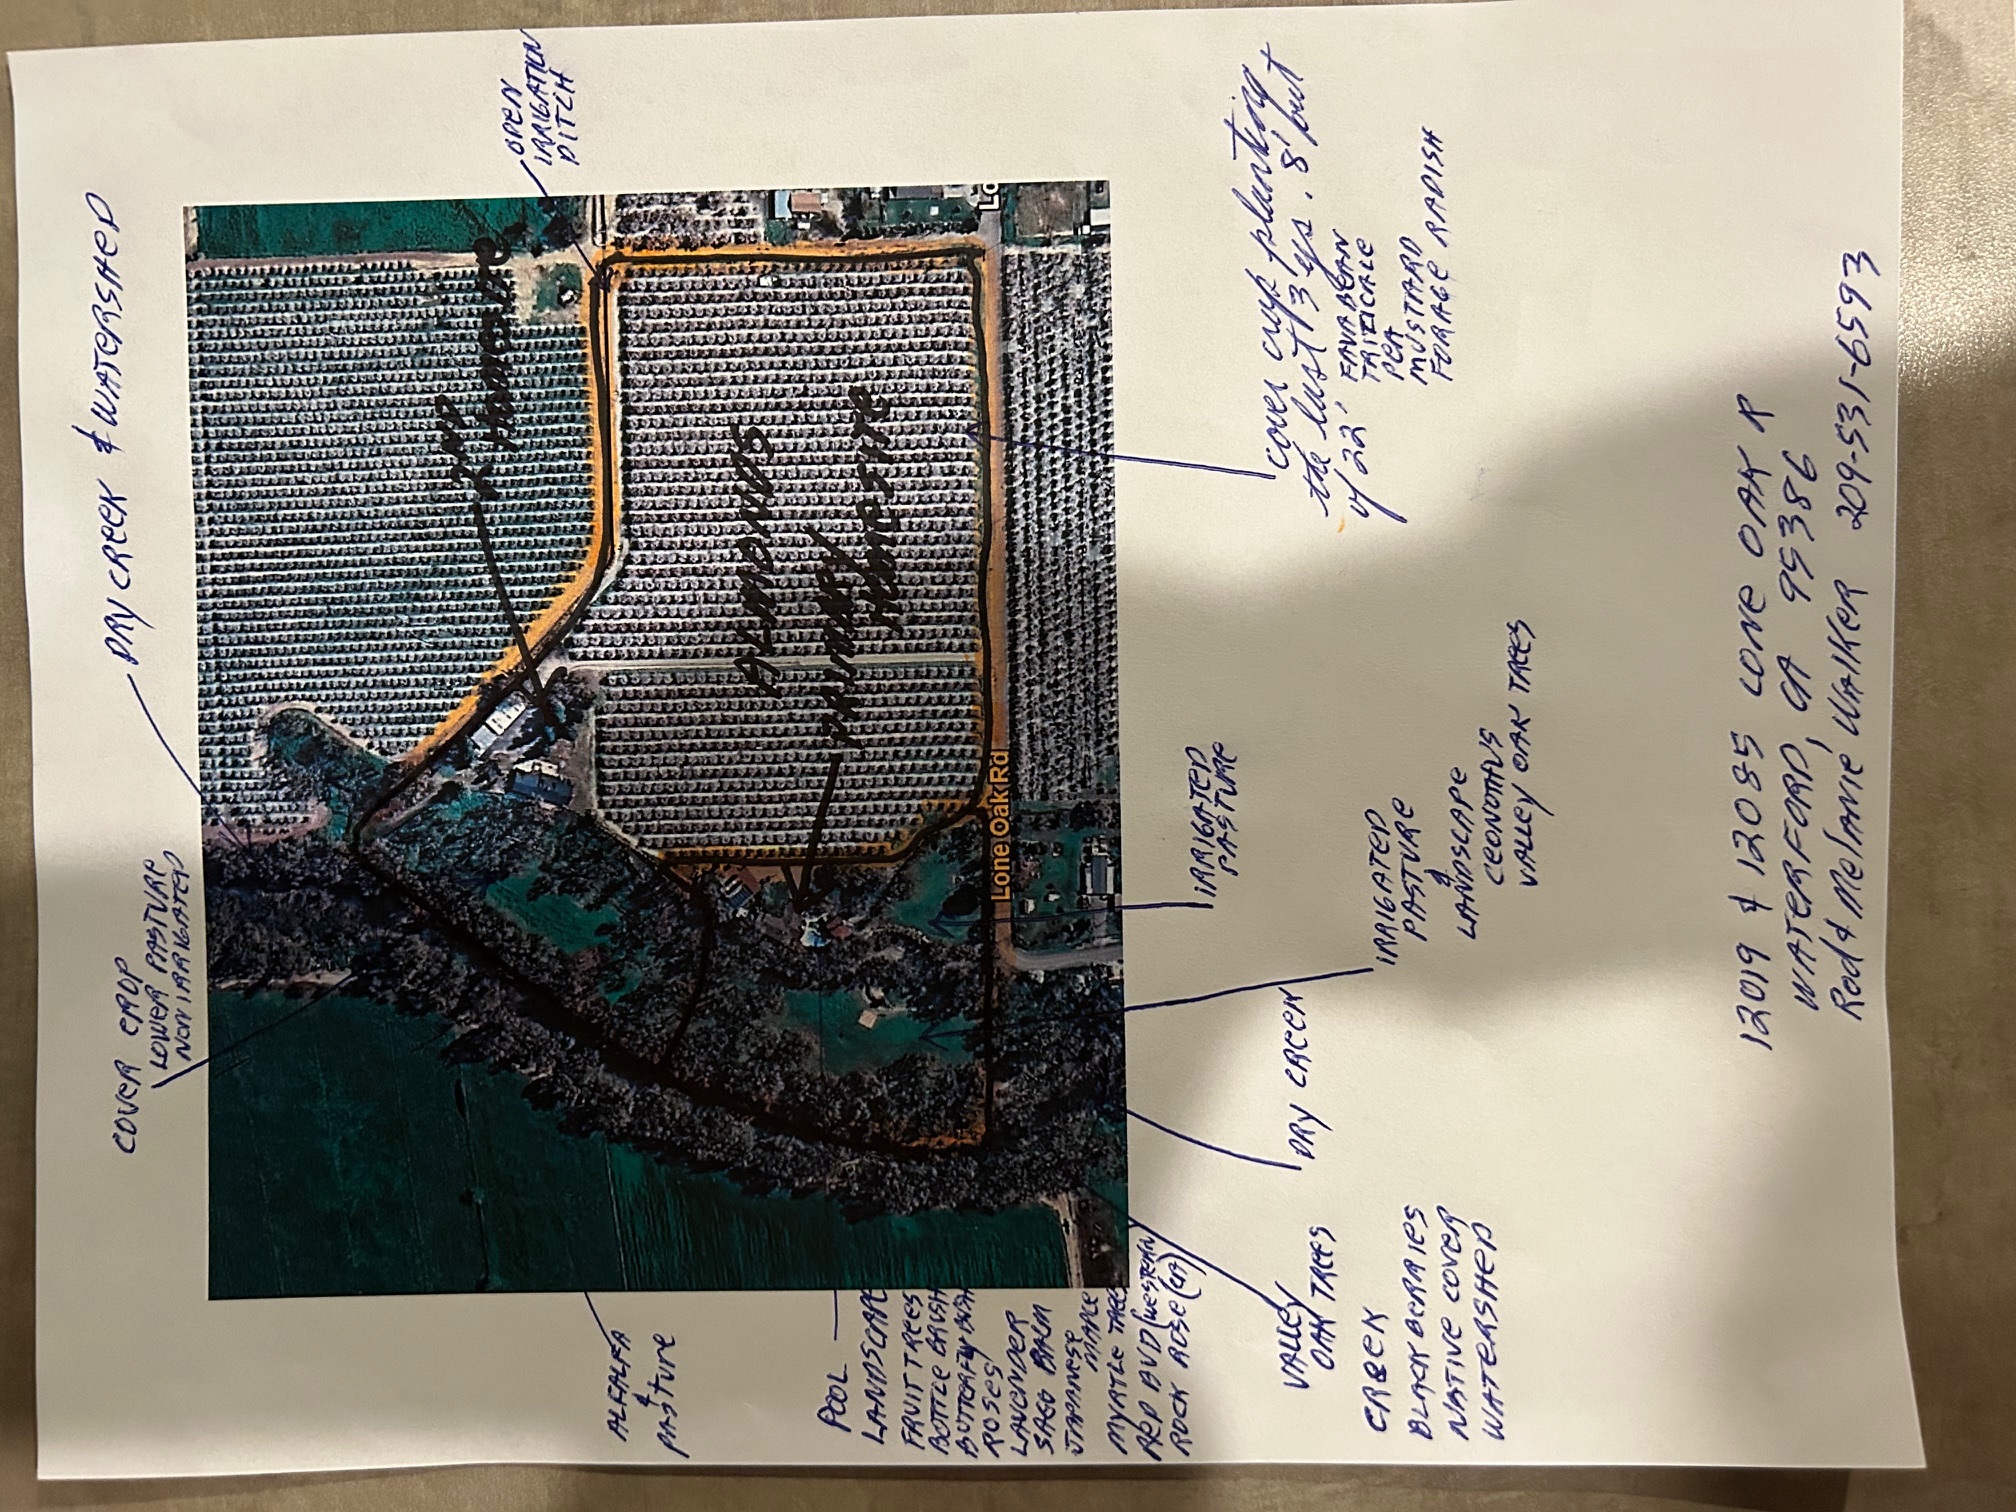 DRY CREEK & WATERSHED
COVER CROP
LOWER PASTURE
NON IRRIGATED
OPEN
IRRIGATION
DITCH
2ND
HOMESITE
ALMONDS
PRIMARY
HOMESITE
Lone Oak Rd
Lo
ALFALFA
&
PASTURE
POOL
LANDSCAPE
FRUIT TREES
BOTTLE BRUSH
BUTTERFLY BUSH
ROSES
LAVENDER
SAGO PALM
JAPANESE
MAPLE
MYRTLE TREE
RED BUD (WESTERN
ROCK ROSE (CA)
cover crop planting
the last 3 yrs. 8' out
of 22'.
FAVA BEAN
TRITICALE
PEA
MUSTARD
FORAGE RADISH
IRRIGATED
PASTURE
IRRIGATED
PASTURE
&
LANDSCAPE
CEONOTHUS
VALLEY OAK TREES
DRY CREEK
VALLEY
OAK TREES
CREEK
BLACK BERRIES
NATIVE COVER
WATERSHED
12019 & 12085 LONE OAK R
WATERFORD, CA 95386
Rod & Melanie Walker 209-531-6593